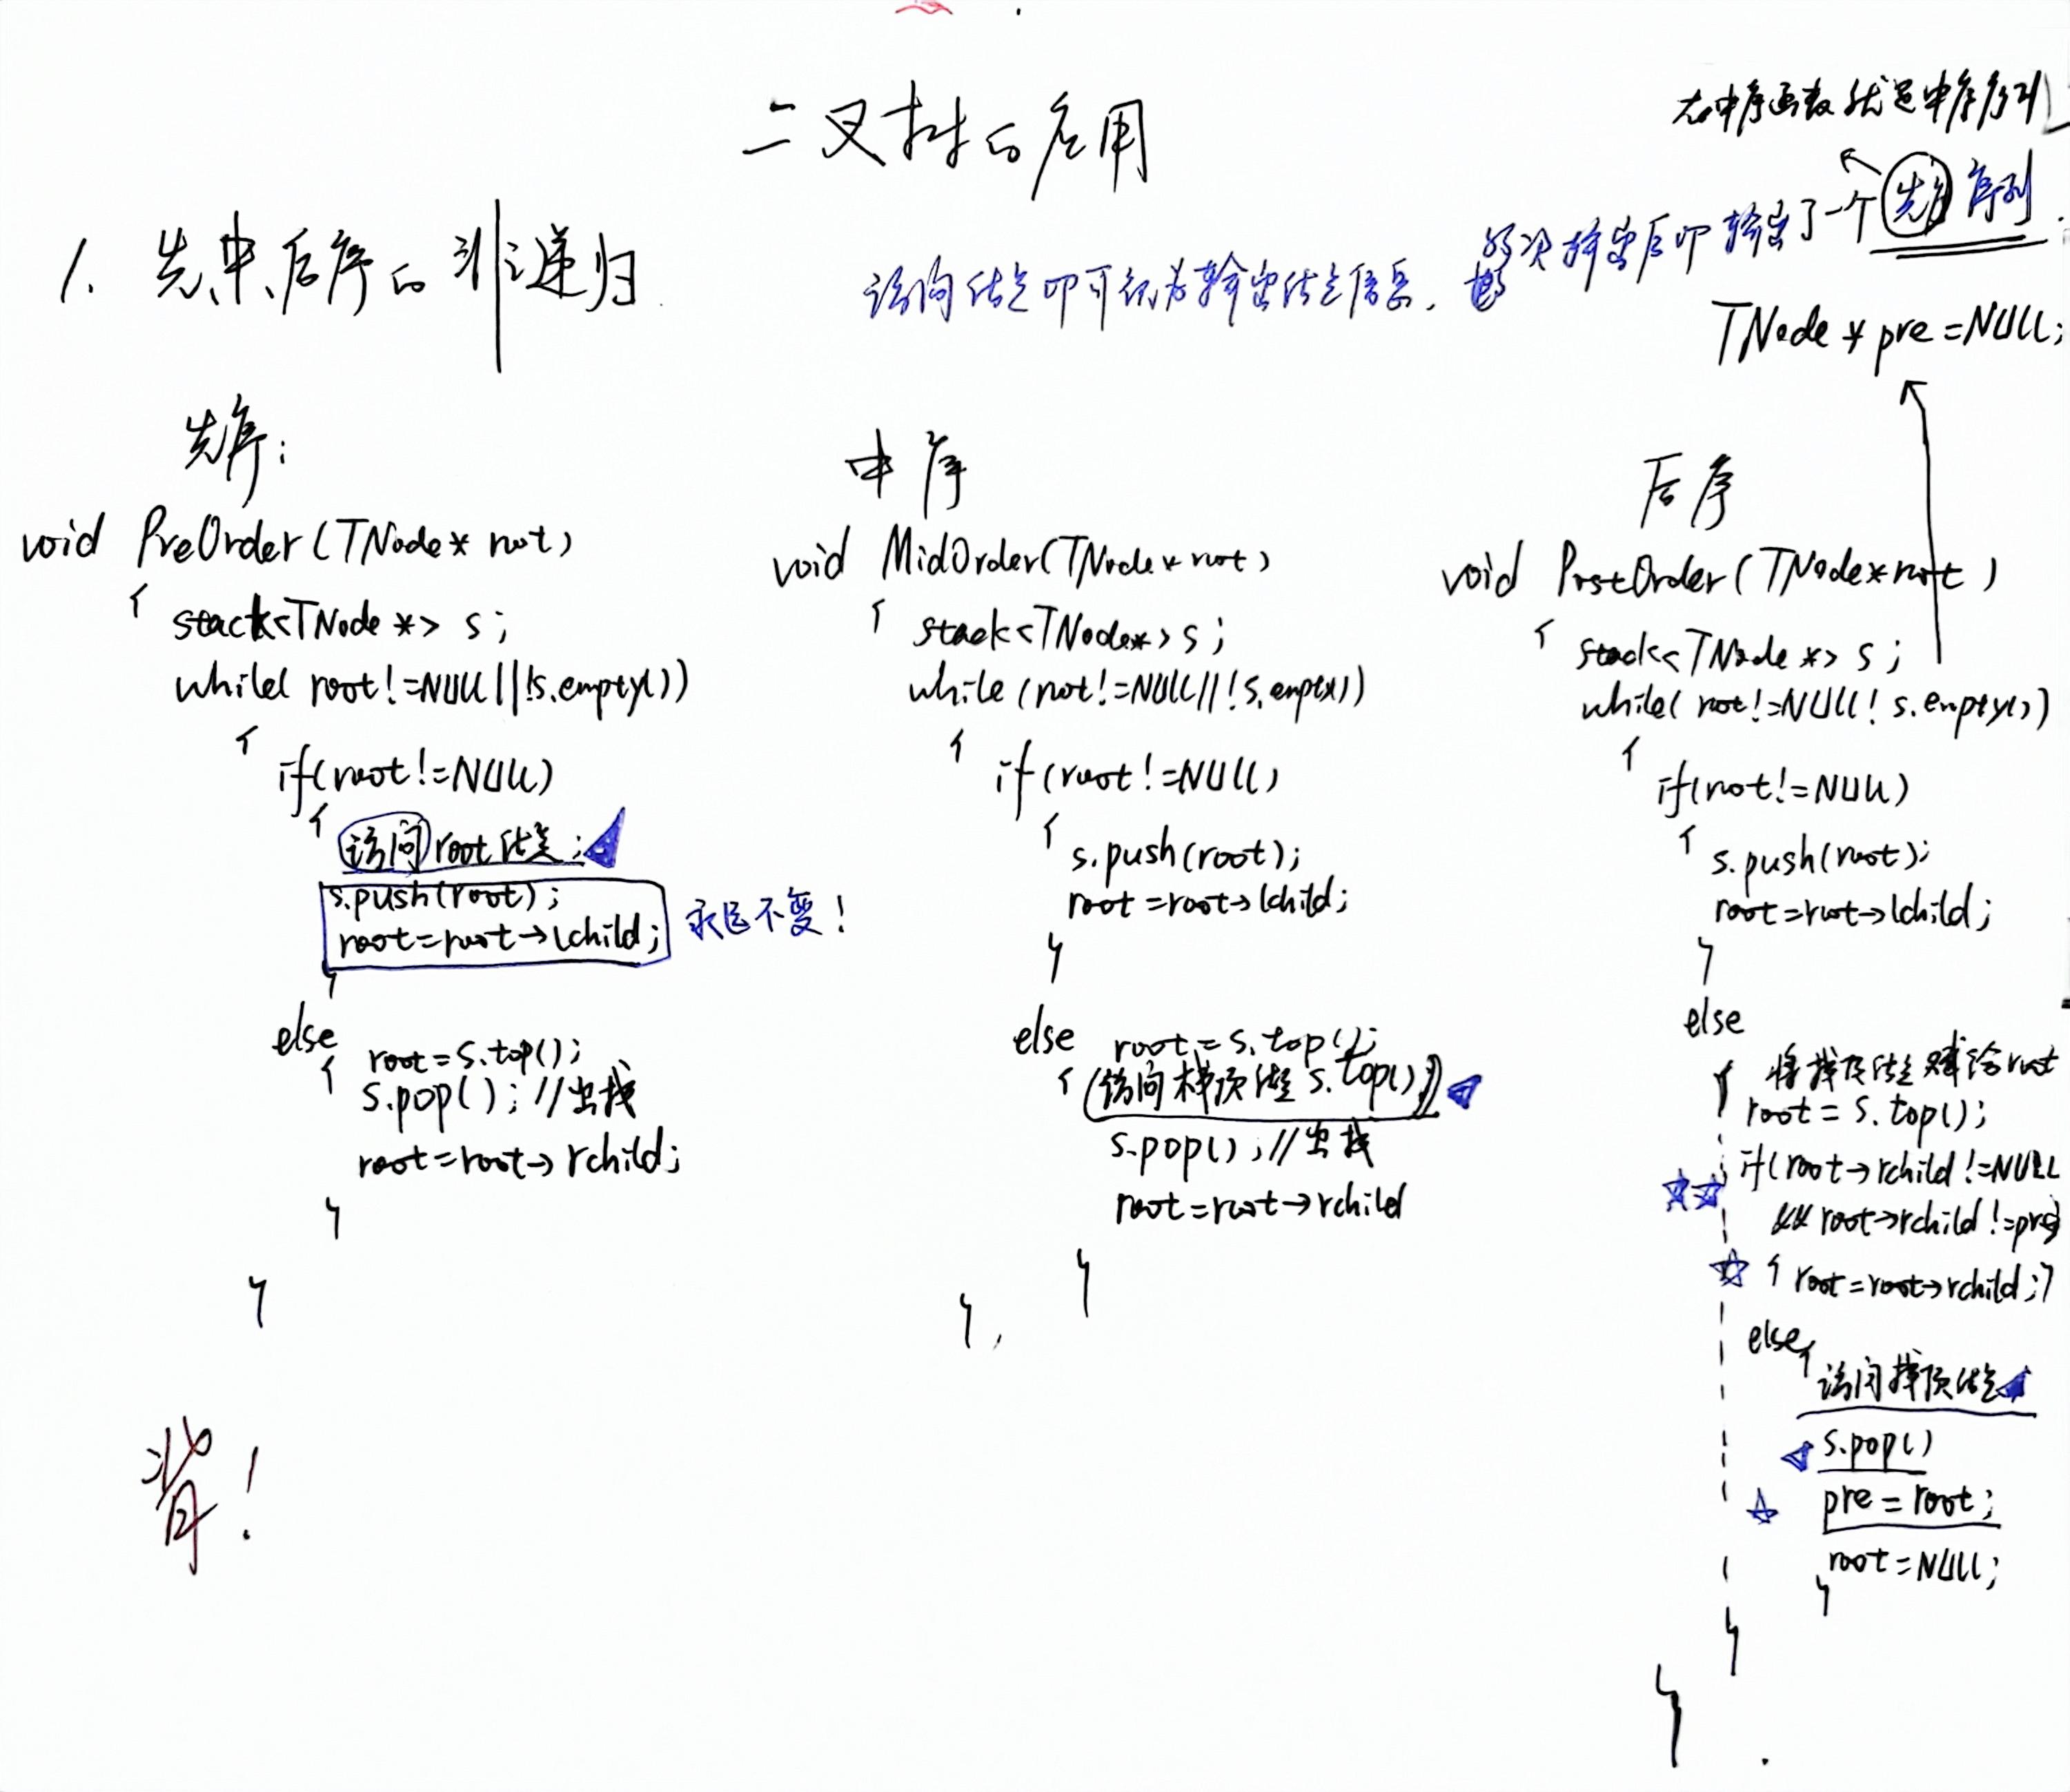 二叉树的应用
在中序函数就是中序序列
1. 先、中、后序的非递归
访问结点即可视为输出结点信息,
依次输出后即输出了一个先序序列
TNode * pre = NULL;
先序:
void PreOrder(TNode* root)
{
stack<TNode *> s;
while( root!=NULL||!s.empty())
{
if(root!=NULL)
{
访问root结点;
s.push(root);
root=root->lchild;
永远不变!
}
else
{
root=s.top();
s.pop(); //出栈
root=root->rchild;
}
}
背!
中序
void MidOrder(TNode* root)
{
stack<TNode*> s;
while(root!=NULL||!s.empty())
{
if(root!=NULL)
{
s.push(root);
root=root->lchild;
}
else
{
root=s.top();
(访问栈顶结点 s.top())
s.pop(); //出栈
root=root->rchild
}
}
后序
void PostOrder(TNode*root)
{
stack<TNode *> s;
while( root!=NULL! s.empty())
{
if(root!=NULL)
{
s.push(root);
root=root->lchild;
}
else
{
将栈顶结点赋给root
root = s.top();
if(root->rchild!=NULL
&& root->rchild!=pre)
{ root=root->rchild;}
else{
访问栈顶结点
s.pop()
pre=root;
root=NULL;
}
}
}